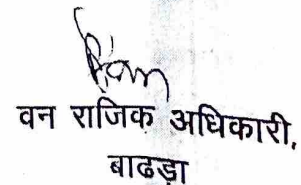 वन राजिक अधिकारी,
बाढड़ा